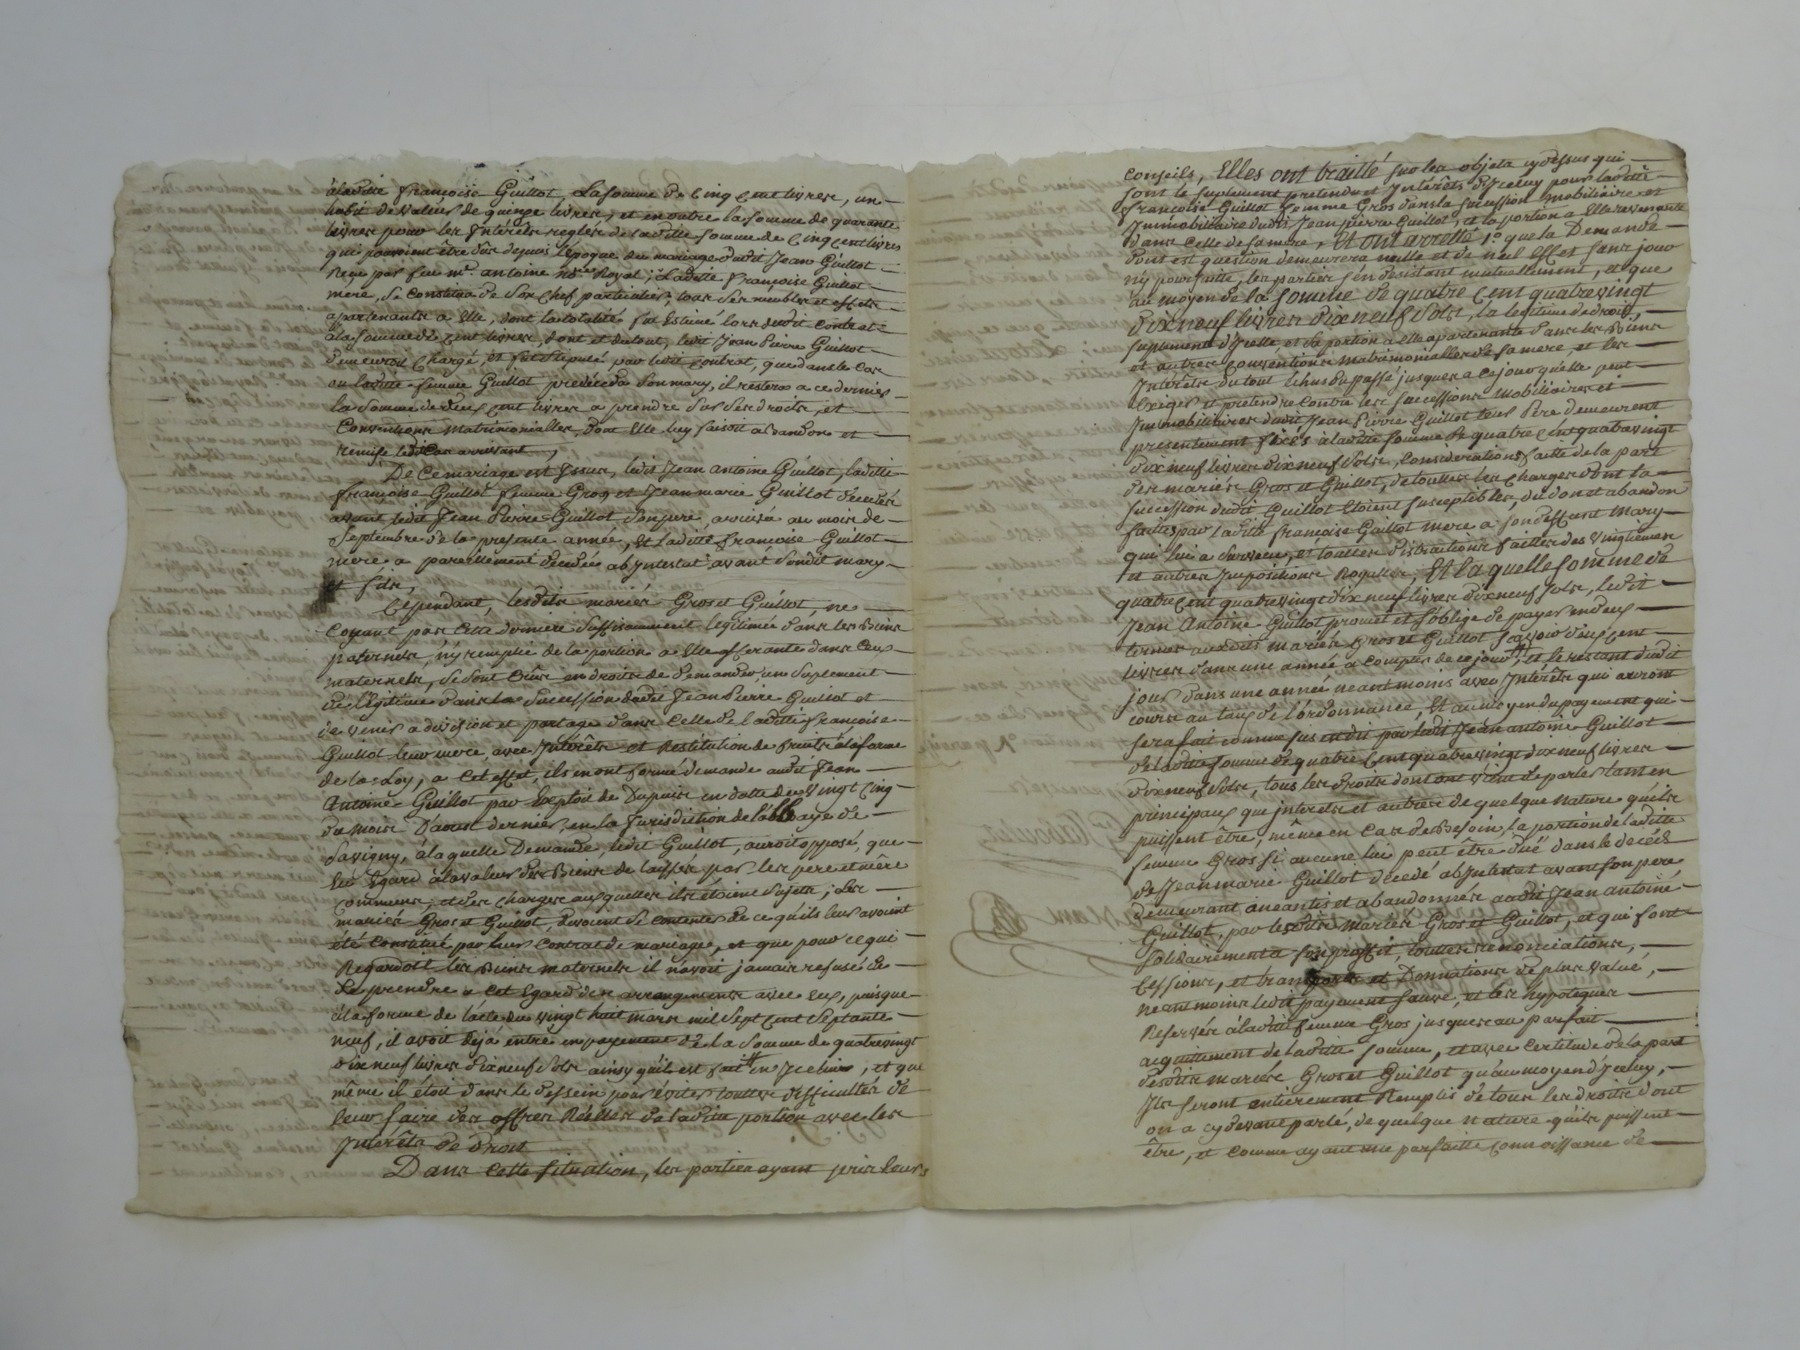 a ladite françoise Guillot, La somme de Cinq Cent livres, un
habit de valeur de quinze livres, et en outre la somme de quarante
livres pour les Interets regles de laditte somme de Cinq Cent livres
qui pourroient être dûs depuis l'époque du mariage dudit Jean Guillot
Reçu par feu me. antoine nre. Royal; Laditte françoise Guillot
mere, se Constitua de son Chef particulier tous ses meubles et effets
apartenants a Elle, dont la totalité fut Estimé lors dudit Contrat
a la somme de Cent livres, dont et du tout, ledit Jean Pierre Guillot
demeuroit Chargé, et fut stipulé par ledit Contrat, que dans le Cas
ou laditte femme Guillot predecéda son mary, il resteroa a ce dernier
la somme de deux Cent livres a prendre sur ses droits, et
Conventions Matrimonialles, dont Elle luy faisoit abandon et
remise ledit Cas arrivant,
De Ce mariage est Issus, ledit Jean Antoine Guillot, laditte
françoise Guillot femme Gros et Jean marie Guillot décédé
avant ledit Jean Pierre Guillot son pere, arrivée au mois de
Septembre de la presente année, Et laditte françoise Guillot
mere a pareillement décédée abIntestat avant son dit mary
et fils,
Cependant, lesdits mariés Gros et Guillot, ne
Croyant pas Cette derniere suffisamment legitimée dans les Biens
paternels, ny remplie de la portion a Elle afferante dans Ceux
maternels, se sont Crûs en droits de demander un suplement
de légitime dans la succession dudit Jean Pierre Guillot et
de venir a division et partage dans Celle de laditte françoise
Guillot leur mere, avec Intérêts et Restitution de fruits a la forme
de la Loy, a Cet effet, ils m'ont formé demande audit Jean
Antoine Guillot par Exploit de Dupuis en datte du Vingt Cinq
du mois D'aoust dernier, en la Jurisdiction de l'abbaye de
Savigny, a laquelle Demande, ledit Guillot, auroit opposé, que
Eu Egard a la valeur des Biens delaissés par les pere et mère
Communs, et des Charges auxquelles ils étoient sujets, les
mariés Gros et Guillot, devoient se Contenter de ce qu'ils leurs avoient
été Constitué par leur Contrat de mariage, et que pour ce qui
Regardoit les Biens maternels il n'avoit jamais refusé de
de prendre a Cet Egard des arrangements avec eux, puisque
a la forme de l'acte du vingt huit mars mil Sept Cent Septante
neuf, il avoit déjà entré en payement de la somme de quatrevingt
dix neuf livres dix neuf sols ainsy qu'il est fait in Icelui, et que
même il étoit dans le dessein pour éviter touttes difficultés de
leur faire des offres Réelles de laditte portion avec les
Intérêts de Droit
Dans Cette situation, les parties ayant pris leurs
conseils, Elles ont traitté sur les objets cydessus qui
sont le suplement pretendu et Intérêts d'Iceluy pour laditte
françoise Guillot femme Gros dans la succession Mobiliaire et
Immobiliaire dudit Jean Pierre Guillot, et la portion a Elle revenante
dans Celle de sa mere, Et ont arretté 1°. que la Demande
dont est question demeurera nulle et de nul Effet sans jour
n'y poursuitte, les parties s'en desistant mutuellement, et que
au moyen de la somme de quatre Cent quatre vingt
dix neuf livres dix neuf sols, la legitime de droit,
suplement d'Icelle, et la portion a elle apartenante dans les Biens
et autres Conventions Matrimonialles de sa mere, et les
Intérêts du tout Echus du passé jusques a Ce jour qu'elle peut
Exiger et pretendre Contre les successions Mobiliaires et
Immobiliaires dudit Jean Pierre Guillot leur Pere demeurent
presentement fixés a laditte somme de quatre Cent quatrevingt
dix neuf livres dix neuf sols, Considerations faitte de la part
des mariés Gros et Guillot, de touttes les Charges dont la
succession dudit Guillot Etoient susceptibles, du don et abandon
faits par laditte françoise Guillot mere a son deffunt Mary
qui lui a survecu, et touttes distractions faittes des Vingtiemes
et autres Impositions Royalles, Et laquelle somme de
quatre Cent quatre vingt dix neuf livres dix neuf sols, ledit
Jean Antoine Guillot promet et s'oblige de payer en deux
termes auxdits mariés Gros et Guillot sçavoir deux Cent
livres dans une année a Compter de Ce jour, et le restant dudit
jour dans une année neantmoins avec Intérêts qui auront
course au taux de l'ordonnance, Et au moyen du payement qui
sera fait comme sus en dit par ledit Jean Antoine Guillot
de laditte somme de quatre Cent quatre vingt dix neuf livres
dix neuf sols, tous les droits dont ont vient de parler tant en
principaux que interets et autres de quelque Nature qu'ils
puissent être, même en Cas de Besoin, la portion de laditte
femme Gros si aucune lui peut être dué dans le décès
de Jean marie Guillot décédé abIntestat avant son pere
demeurant aneantis et abandonnés audit Jean Antoine
Guillot, par lesdits Mariés Gros et Guillot, et qui font
solidairement a son proffit, touttes renonciations,
Cessions, et transports et Donnations de plus valué,
neantmoins ledit payement sauve, et les hypoteques
Reservés a laditte femme Gros jusques au parfait
acquittement de laditte somme, et avec Certitude de la part
desdits mariés Gros et Guillot qu'au moyen d'Iceluy,
Ils seront entierement Remplis de tous les droits dont
on a cydevant parlé, de quelque nature qu'ils puissent
être, et Comme ayant une parfaitte Connoissance de